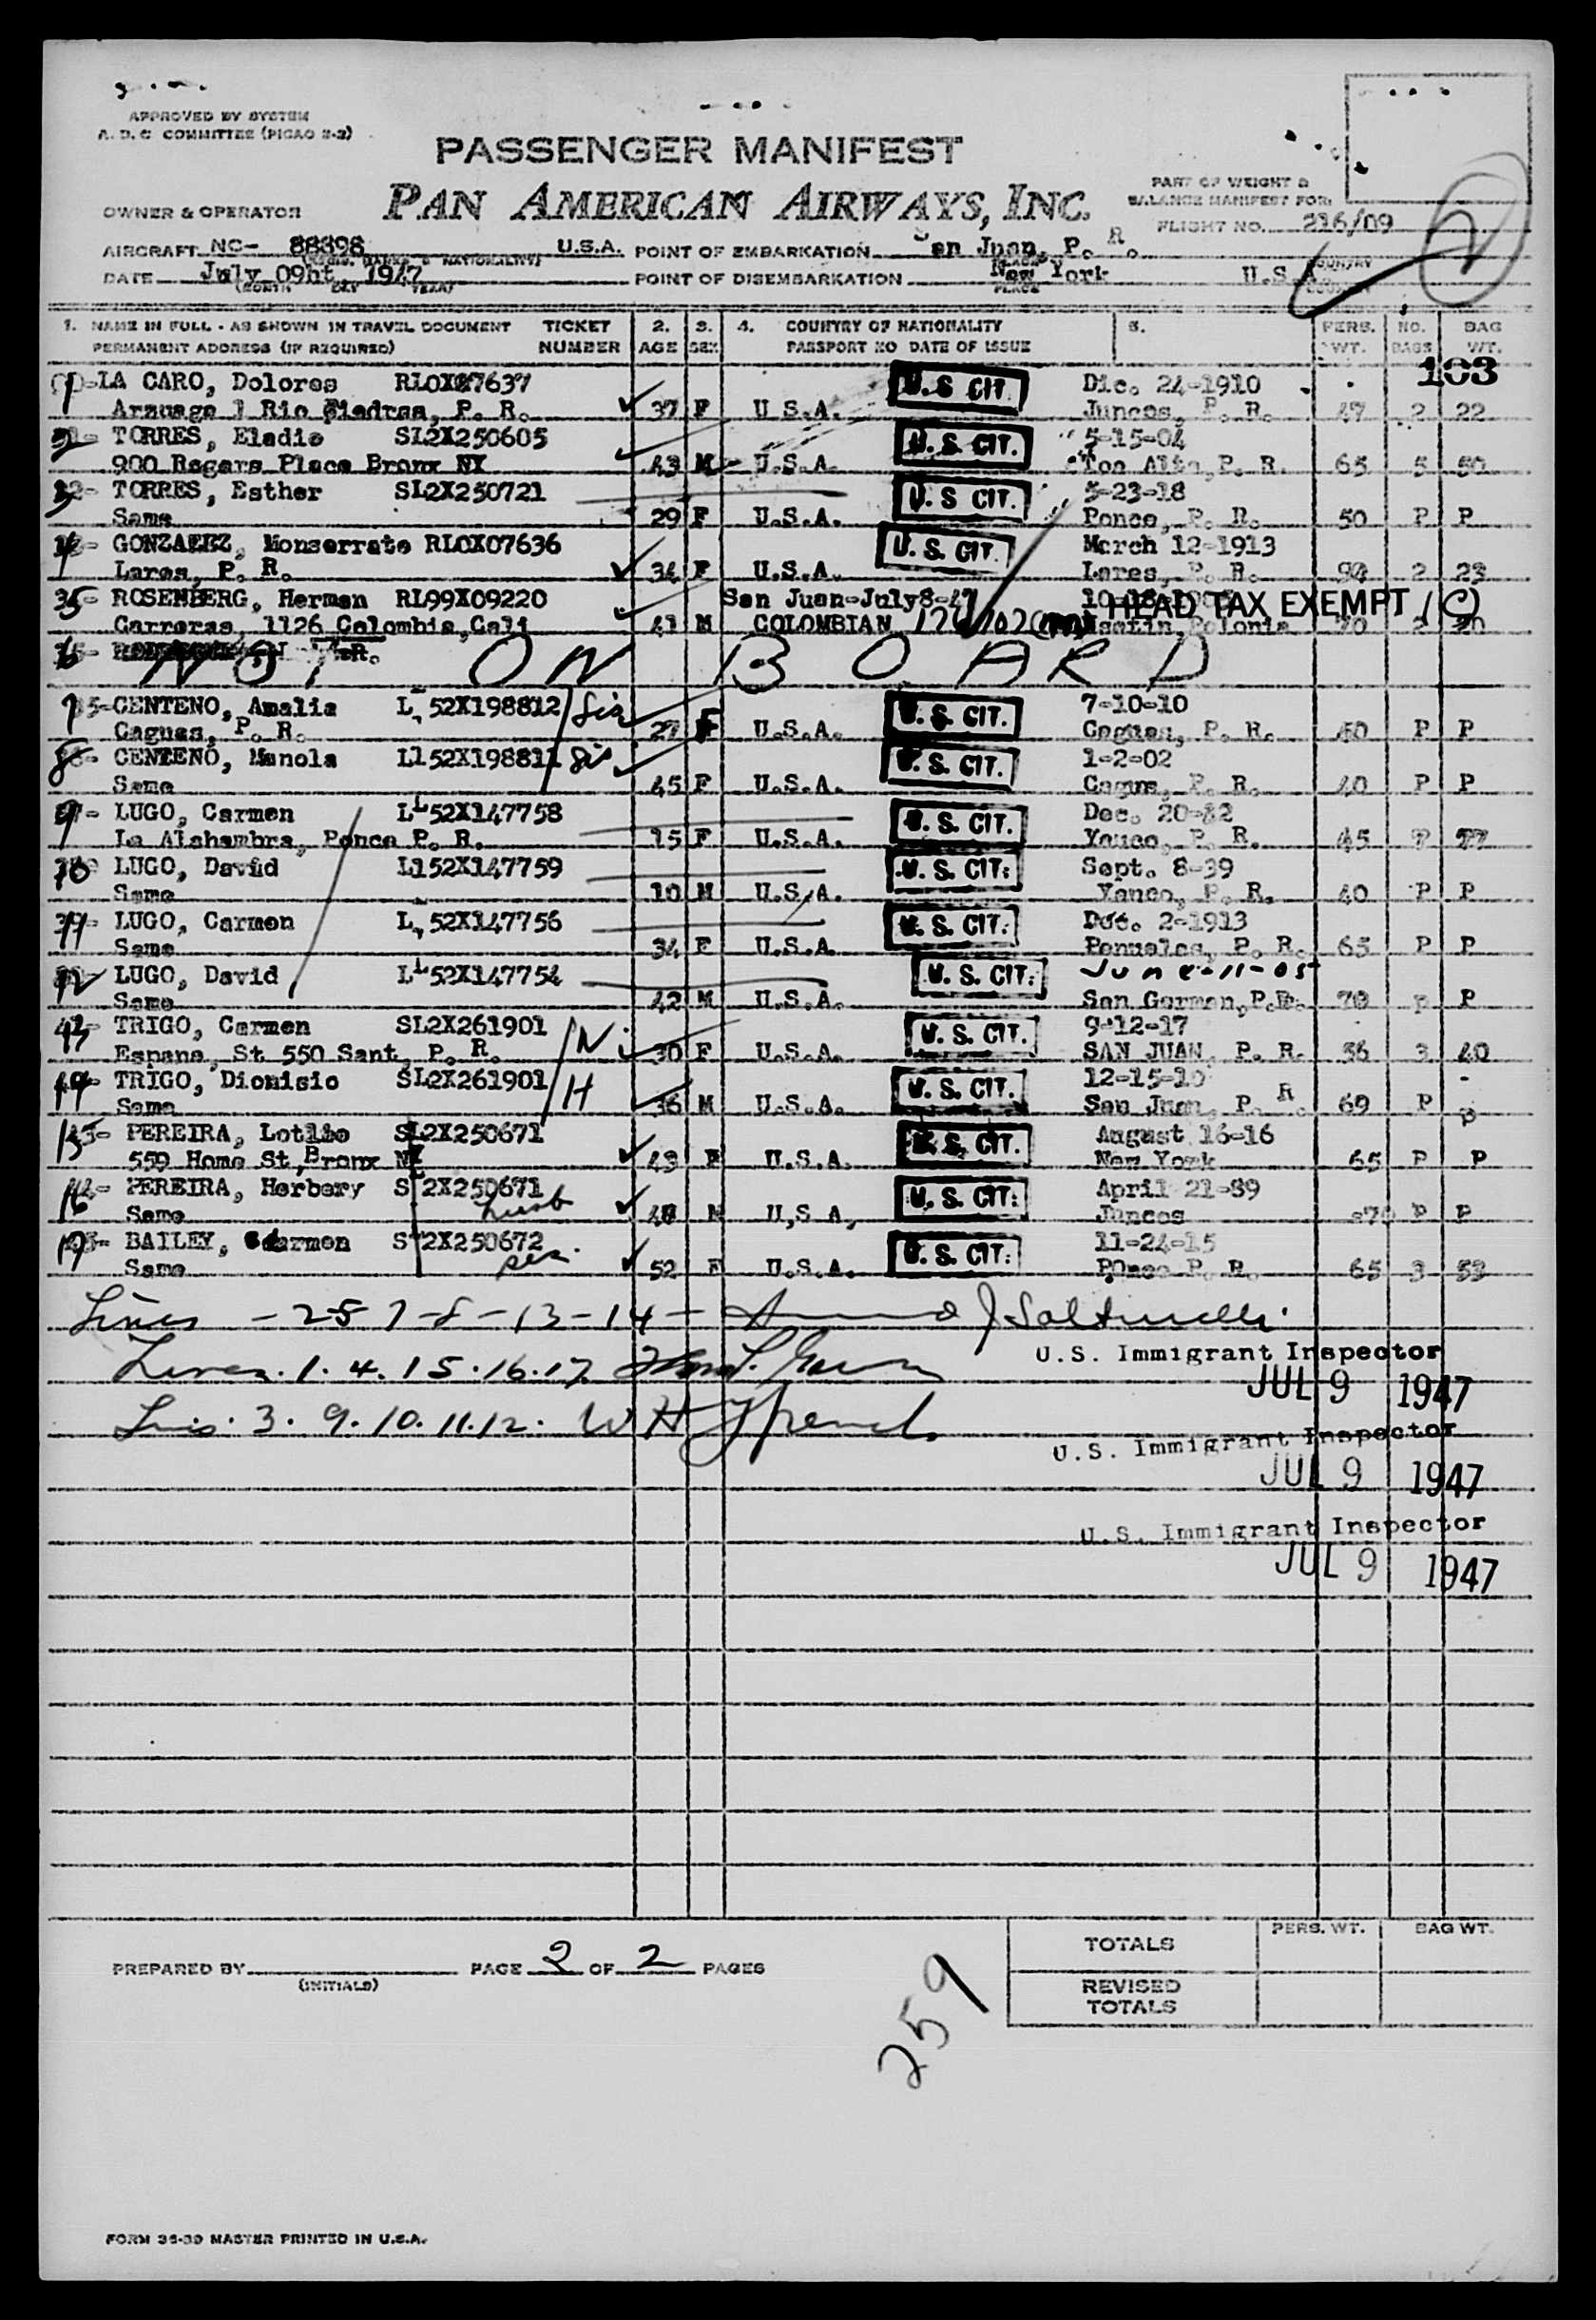 APPROVED BY SYSTEM
A. D. C COMMITTEE (PICAO 2-2)
PASSENGER MANIFEST
PAN AMERICAN AIRWAYS, INC.
PART OF WEIGHT &
BALANCE MANIFEST FOR:
OWNER & OPERATOR
FLIGHT NO. 216/09
2
AIRCRAFT NC- 88898 U.S.A. POINT OF EMBARKATION San Juan, P. R.
DATE July 09ht 1947 POINT OF DISEMBARKATION New York U.S.A.
(MONTH DAY YEAR) PLACE COUNTRY
1. NAME IN FULL - AS SHOWN IN TRAVEL DOCUMENT TICKET 2. 3. 4. COUNTRY OF NATIONALITY 5. PERS. NO. BAG
PERMANENT ADDRESS (IF REQUIRED) NUMBER AGE SEX PASSPORT NO DATE OF ISSUE WT. BAGS WT.
103
1 LA CARO, Dolores RLOX07637 U.S CIT. Dic. 24-1910
Arzuaga 1 Rio Piedras, P. R. 37 F U S.A. Juncos, P. R. 47 2 22
2 TORRES, Eladio SL2X250605 U.S. CIT. 5-15-04
900 Rogers Place Bronx NY 43 M U.S.A. Toa Alta, P. R. 65 5 50
3 TORRES, Esther SL2X250721 U.S CIT. 5-23-18
Same 29 F U.S.A. Ponce, P. R. 50 P P
4 GONZAEEZ, Monserrate RLOX07636 U.S. CIT. March 12-1913
Lares, P. R. 34 F U.S.A. Lares, P. R. 94 2 23
5 ROSENBERG, Herman RL99X09220 San Juan-July8-47 HEAD TAX EXEMPT (C)
Carreras, 1126 Colombia,Cali 41 M COLOMBIAN Polonia 70 2
6 NOT ON BOARD
7 CENTENO, Amalia L152X198812 Sis U.S. CIT. 7-10-10
Caguas, P. R. 27 F U.S.A. Caguas, P. R. 40 P P
8 CENTENO, Manola L152X198811 Sis U.S. CIT. 1-2-02
Same 45 F U.S.A. Cagus, P. R. 40 P P
9 LUGO, Carmen L152X147758 U.S. CIT. Dec. 20-32
La Alahambra, Ponce P. R. 15 F U.S.A. Yauco, P. R. 45 P
10 LUGO, David L152X147759 U.S. CIT. Sept. 8-39
Same 10 M U.S.A. Yauco, P. R. 40 P P
11 LUGO, Carmen L152X147756 U.S. CIT. Dec. 2-1913
Same 34 F U.S.A Penuelas, P. R. 65 P P
12 LUGO, David L152X147754 U.S. CIT. June-11-05
Same 42 M U.S.A. San German,P.R. 70 P P
13 TRIGO, Carmen SL2X261901 W U.S. CIT. 9-12-17
Espana, St 550 Sant, P. R. 30 F U.S.A. SAN JUAN, P. R. 56 3 40
14 TRIGO, Dionisio SL2X261901 H U.S. CIT. 12-15-10
Same 36 M U.S.A. San Juan, P. R. 69 P P
15 PEREIRA, SL2X250671 U.S. CIT. August 16-16
559 Home St,Bronx NY 49 F U.S.A. New York 65 P P
16 PEREIRA, Herbery SL2X250671 husb U.S. CIT. April 21-89
Same 48 M U,S A, Juncos 70 P P
17 BAILEY, Carmen SL2X250672 U.S. CIT. 11-24-15
Same 52 F U.S.A. POnce P. R. 65 3 53
Lines - 2-5 7-8-13-14-
U.S. Immigrant Inspector
Lines. 1. 4. 15. 16. 17.
JUL 9 1947
Lines. 3. 9. 10. 11. 12. W H
U.S. Immigrant Inspector
JUL 9 1947
U.S. Immigrant Inspector
JUL 9 1947
PERS. WT. BAG WT.
TOTALS
PREPARED BY PAGE 2 OF 2 PAGES
(INITIALS)
REVISED
TOTALS
259
FORM 36-39 MASTER PRINTED IN U.S.A.